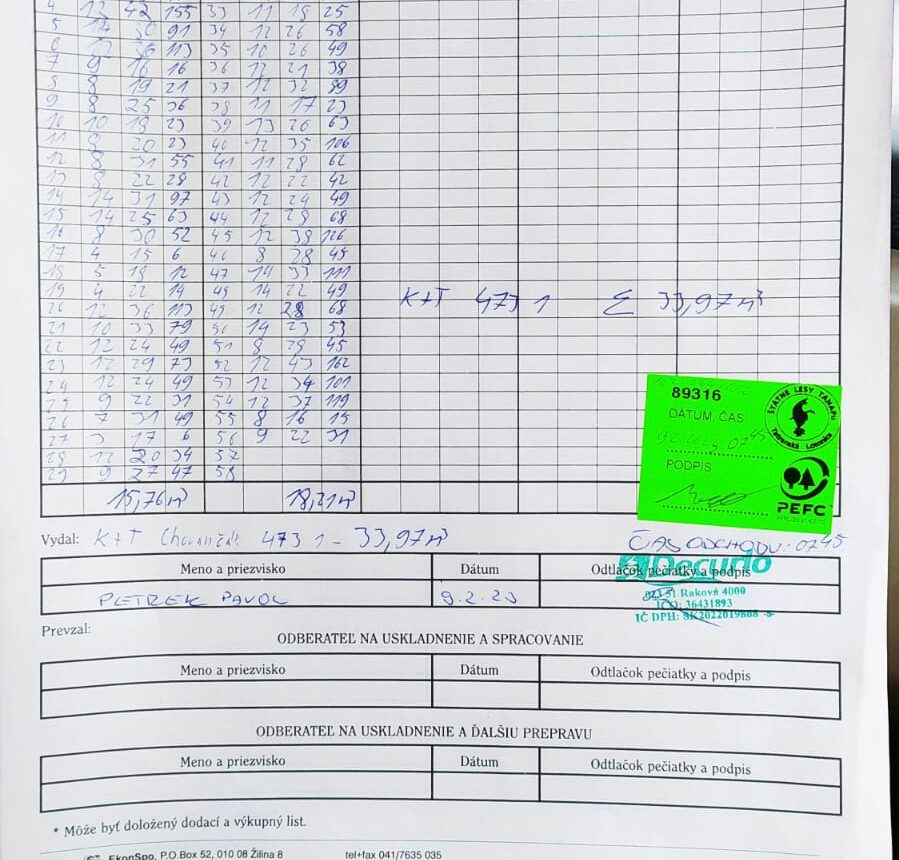 4 12 42 155 33 11 18 25
5 12 30 91 34 12 26 58
6 36 113 35 10 26 49
7 9 16 16 36 12 21 38
8 8 19 21 37 12 32 89
9 8 25 36 38 11 17 23
10 10 18 23 39 13 26 63
11 8 20 23 40 12 35 106
12 8 31 55 41 11 28 62
13 8 22 28 42 12 22 42
14 14 31 97 43 12 24 49
15 14 25 63 44 12 28 68
8 30 52 45 12 38 126
17 4 15 6 46 8 28 45
18 5 18 12 47 14 33 111
19 4 22 14 48 14 22 49
20 12 36 113 49 12 28 68
21 10 33 79 50 14 23 53
22 12 24 49 51 8 28 45
23 12 29 73 52 12 43 162
24 12 24 49 53 12 34 101
25 9 22 31 54 12 37 119
26 7 31 49 55 8 16 15
27 3 17 6 56 9 22 31
28 12 20 34 57
29 9 27 47 58
K+T 473 1 Σ 33,97 m³
15,76 m³ 18,21 m³
89316
DÁTUM, ČAS
07 45
PODPIS
ŠTÁTNE LESY TANAPU
Tatranská Lomnica
PEFC
Vydal: K+T 473 1 - 33,97 m³
ČAS ODCHODU: 07 45
Meno a priezvisko Dátum Odtlačok pečiatky a podpis
PETREK PAVOL 9.2.23
023 51 Raková 4000
IČO: 36431893
IČ DPH: SK2022019868
Prevzal:
ODBERATEĽ NA USKLADNENIE A SPRACOVANIE
Meno a priezvisko Dátum Odtlačok pečiatky a podpis
ODBERATEĽ NA USKLADNENIE A ĎALŠIU PREPRAVU
Meno a priezvisko Dátum Odtlačok pečiatky a podpis
* Môže byť doložený dodací a výkupný list.
EkonSpo, P.O.Box 52, 010 08 Žilina 8 tel+fax 041/7635 035